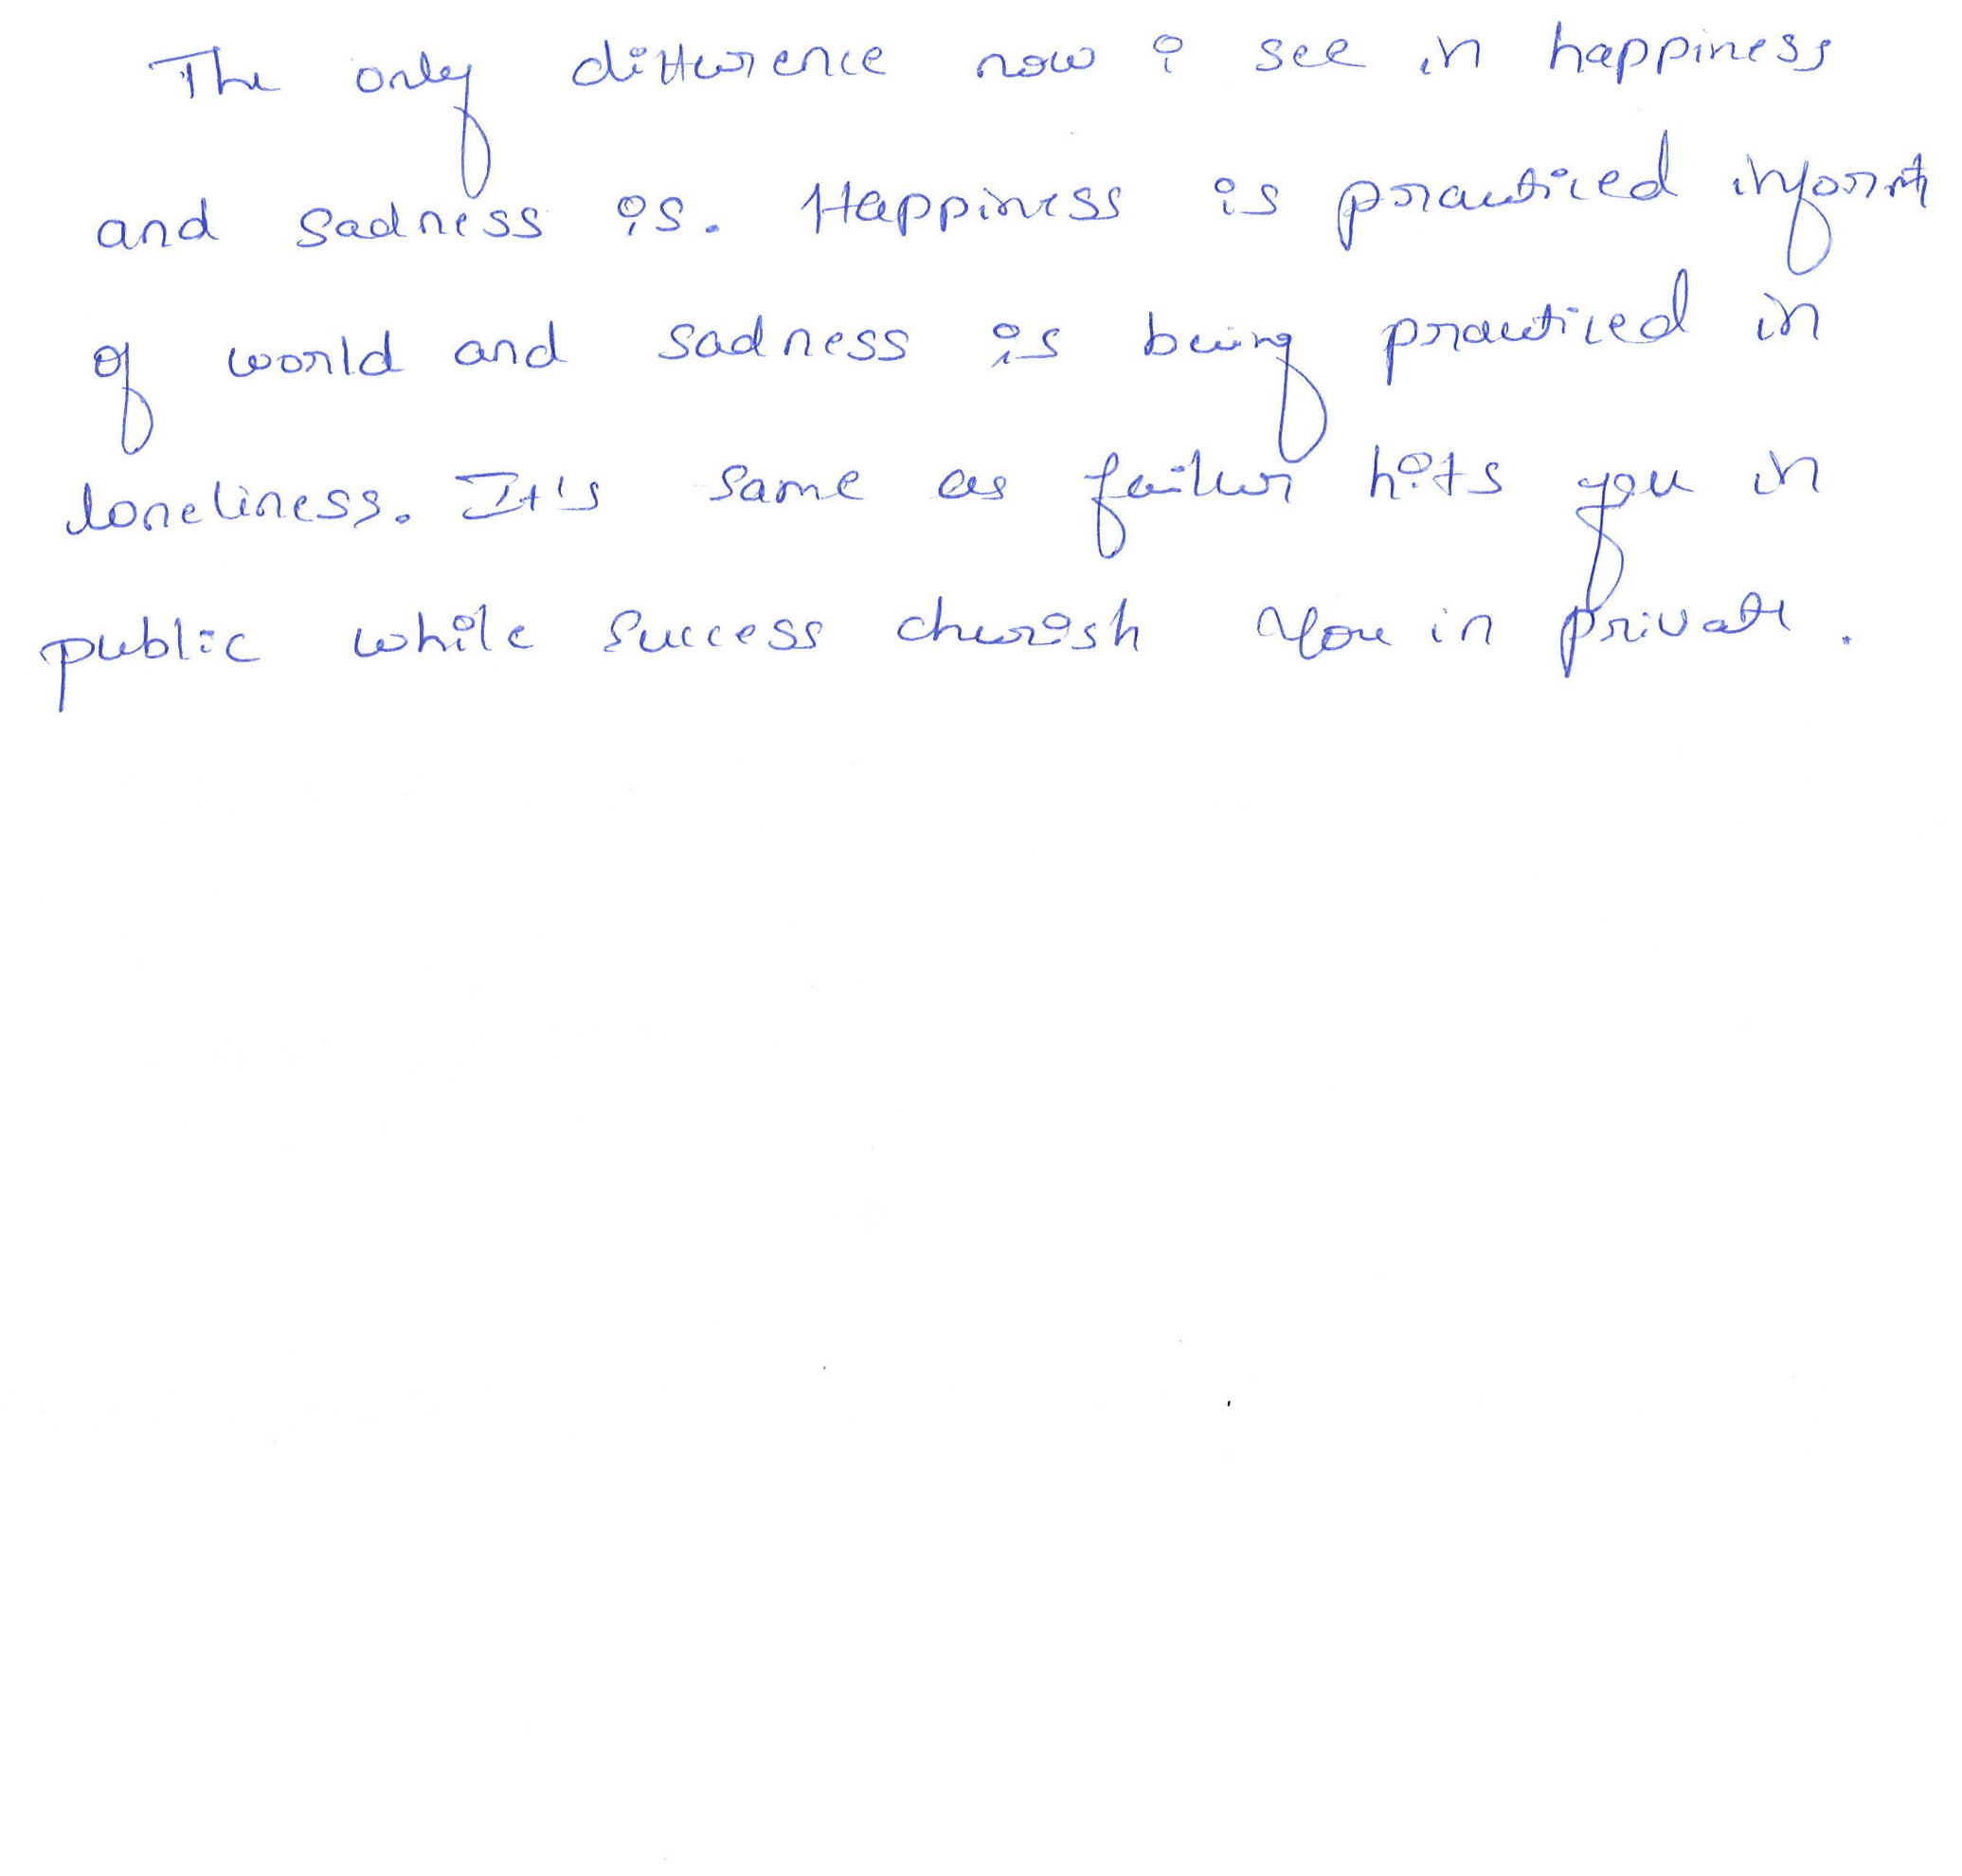 The only difference now i see in happiness
and sadness is. Happiness is practiced infornt
of world and sadness is being practiced in
loneliness. It's same as failuer hits you in
public while success cherish you in private.